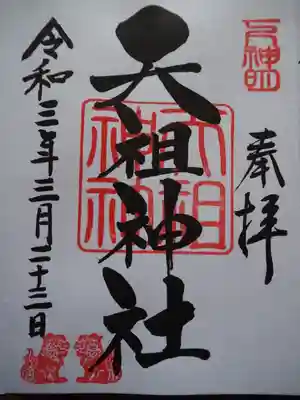 奉拝
天祖神社
令和三年三月二十三日
天祖神社